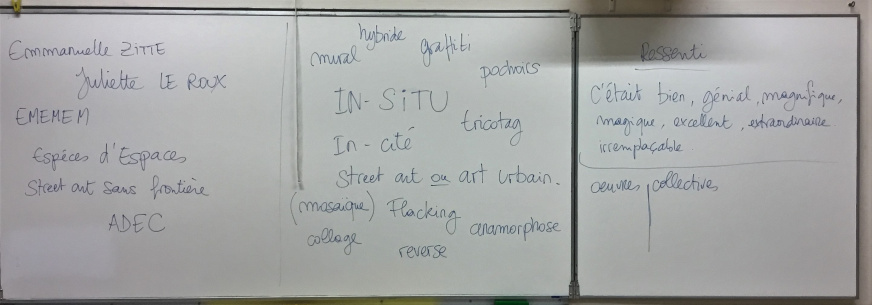 Emmanuelle ZITTE
Juliette LE ROUX
EMEMEM
Espèces d'Espaces
Street art sans frontière
ADEC
hybride
mural
graffiti
pochoirs
IN-SiTU
tricotag
In-cité
Street art ou art urbain.
(mosaïque) Flacking
anamorphose
collage
reverse
Ressenti
C'était bien, génial, magnifique,
magique, excellent, extraordinaire
irremplaçable
oeuvres collectives